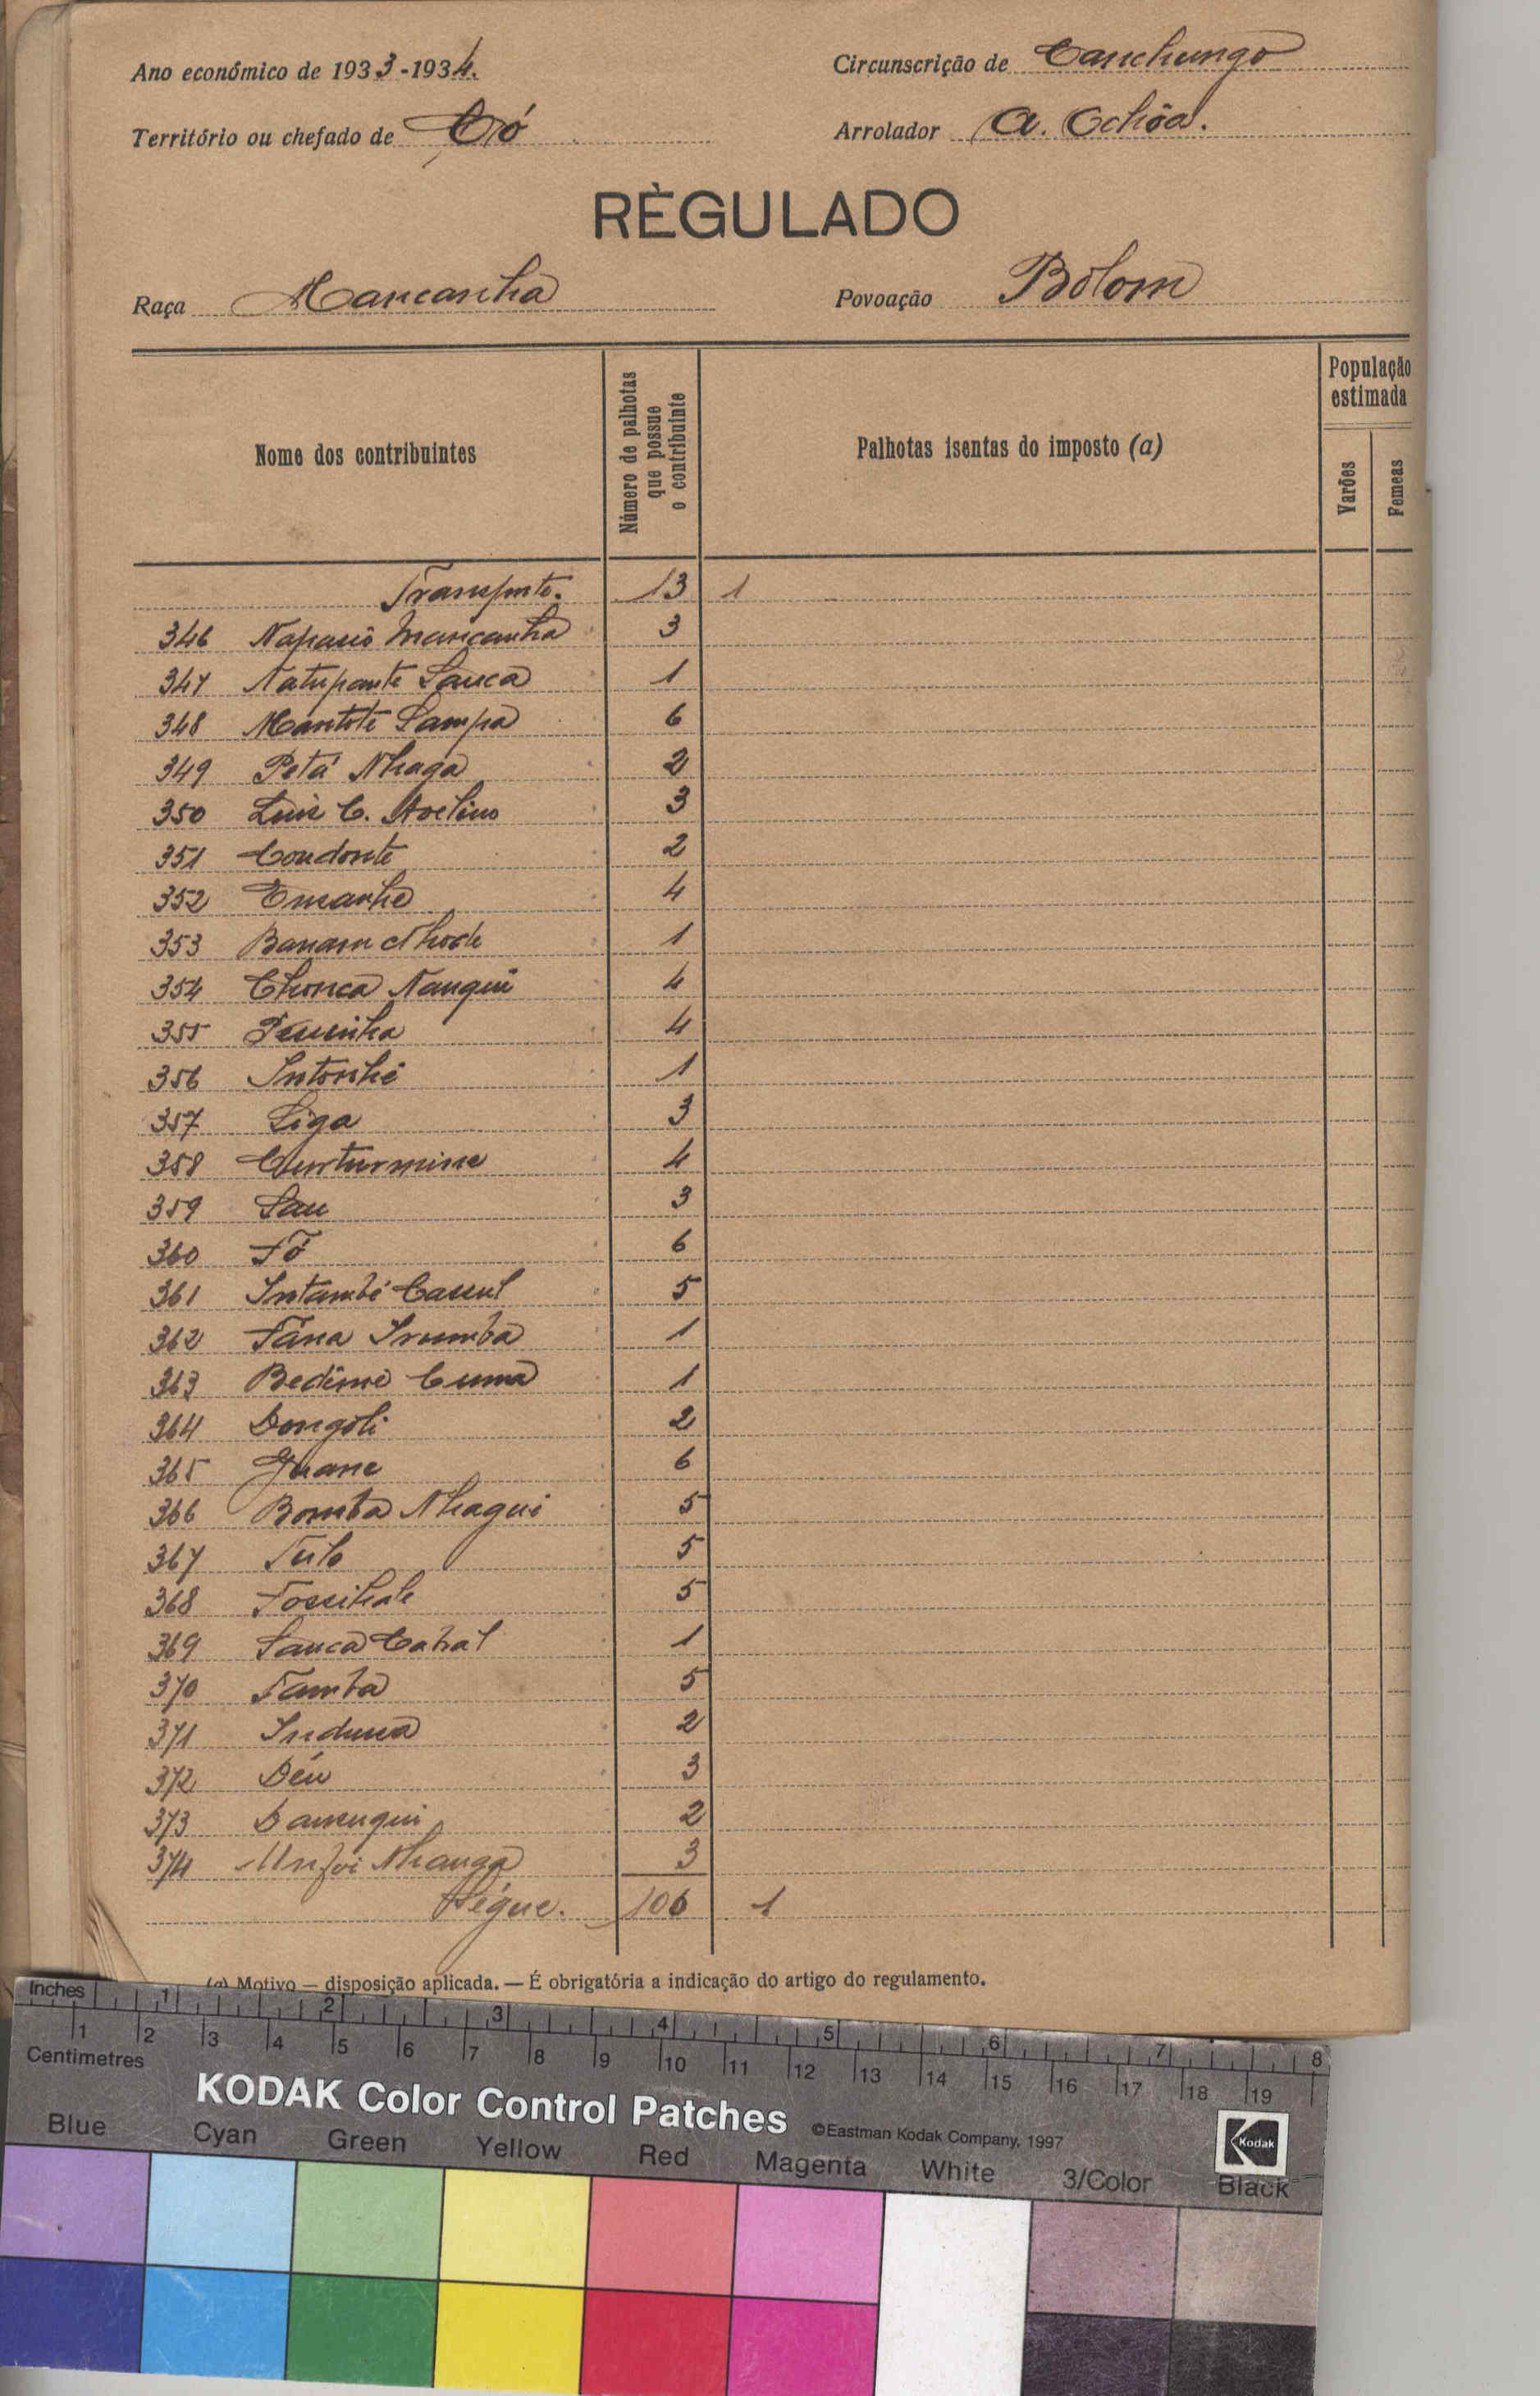 Ano económico de 1933-1934.
Circunscrição de Canchungo
Território ou chefado de Có
Arrolador A. Ochôa.
RÈGULADO
Raça Mancanha
Povoação Bólom
Nome dos contribuintes
Número de palhotas que possue o contribuinte
Palhotas isentas do imposto (a)
População estimada
Varões
Femeas
Transporte. 13 1
346 Mancanha 3
347 Natupante Sanca 1
348 Mantote Sampa 6
349 Petá Nhaga 2
350 Luis C. Avelino 3
351 Condonte 2
352 4
353 Banam 1
354 Chonca Nanqui 4
355 4
356 Intonhé 1
357 Liga 3
358 4
359 Sau 3
360 Fó 6
361 Intambé 5
362 Fána 1
363 Bedime Cuma 1
364 Dongoli 2
365 6
366 Bomba Nhagui 5
367 5
368 5
369 Sanca Cabral 1
370 Famba 5
371 2
372 Déu 3
373 2
374 3
Ségue. 106 1
(a) Motivo — disposição aplicada. — É obrigatória a indicação do artigo do regulamento.
Inches 1 2 3 4 5 6 7 8
Centimetres 1 2 3 4 5 6 7 8 9 10 11 12 13 14 15 16 17 18 19
KODAK Color Control Patches
©Eastman Kodak Company, 1997
Kodak
Blue Cyan Green Yellow Red Magenta White 3/Color Black